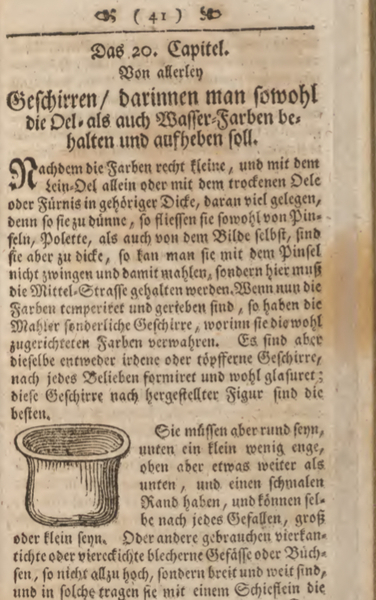 ( 41 )
Das 20. Capitel.
Von allerley
Geschirren/ darinnen man sowohl
die Oel- als auch Wasser-Farben be-
halten und aufheben soll.
Nachdem die Farben recht kleine, und mit dem
Lein-Oel allein oder mit dem trockenen Oele
oder Fürnis in gehöriger Dicke, daran viel gelegen,
denn so sie zu dünne, so fliessen sie sowohl von Pin-
seln, Polette, als auch von dem Bilde selbst, sind
sie aber zu dicke, so kan man sie mit dem Pinsel
nicht zwingen und damit mahlen, sondern hier muß
die Mittel-Strasse gehalten werden. Wenn nun die
Farben temperiret und gerieben sind, so haben die
Mahler sonderliche Geschirre, worinn sie die wohl
zugerichteten Farben verwahren. Es sind aber
dieselbe entweder irdene oder töpfferne Geschirre,
nach jedes Belieben formiret und wohl glasuret;
diese Geschirre nach hergestellter Figur sind die
besten.
Sie müssen aber rund seyn,
unten ein klein wenig enge,
oben aber etwas weiter als
unten, und einen schmalen
Rand haben, und können sel-
be nach jedes Gefallen, groß
oder klein seyn. Oder andere gebrauchen vierkan-
tichte oder viereckichte blecherne Gefässe oder Büch-
sen, so nicht allzu hoch, sondern breit und weit sind,
und in solche tragen sie mit einem Schieflein die